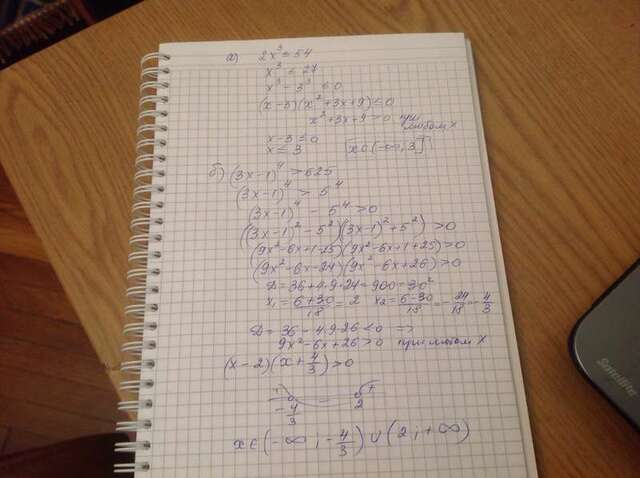 а) 2x³ ≤ 54
x³ ≤ 27
x³ - 3³ ≤ 0
(x-3)(x²+3x+9) ≤ 0
x²+3x+9 > 0 при любом x
x-3 ≤ 0
x ≤ 3 x∈(-∞; 3]
б) (3x-1)⁴ > 625
(3x-1)⁴ > 5⁴
(3x-1)⁴ - 5⁴ > 0
((3x-1)² - 5²)((3x-1)² + 5²) > 0
(9x²-6x+1-25)(9x²-6x+1+25) > 0
(9x²-6x-24)(9x²-6x+26) > 0
D = 36+4·9·24 = 900 = 30²
x₁ = (6+30)/18 = 2 x₂ = (6-30)/18 = -24/18 = -4/3
D = 36 - 4·9·26 < 0 =>
9x²-6x+26 > 0 при любом x
(x-2)(x+4/3) > 0
+ - +
-4/3 2
x∈(-∞; -4/3)∪(2; +∞)
Satellite